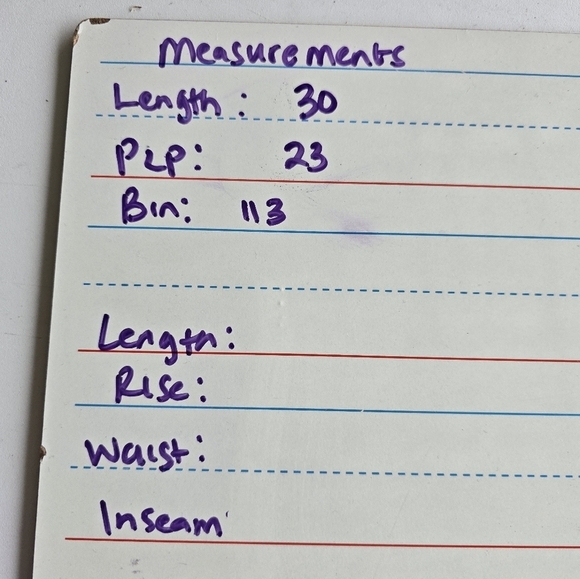 Measurements
Length: 30
P2P: 23
Bin: 113
Length:
Rise:
Waist:
Inseam